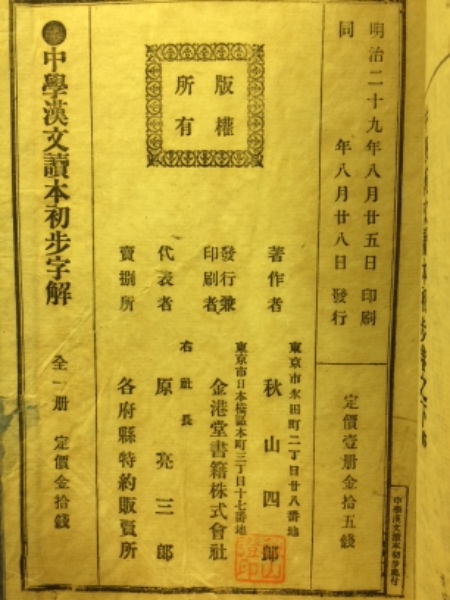 明治二十九年八月廿五日印刷
同年八月廿八日發行
定價壹册金拾五錢
版權
所有
著作者
東京市永田町二丁目廿八番地
秋山四郎
發行兼
印刷者
東京市日本橋區本町三丁目十七番地
金港堂書籍株式會社
代表者
右社長
原亮三郎
賣捌所
各府縣特約販賣所
中學漢文讀本初步字解
全一册 定價金拾錢
中學漢文讀本初步奥付